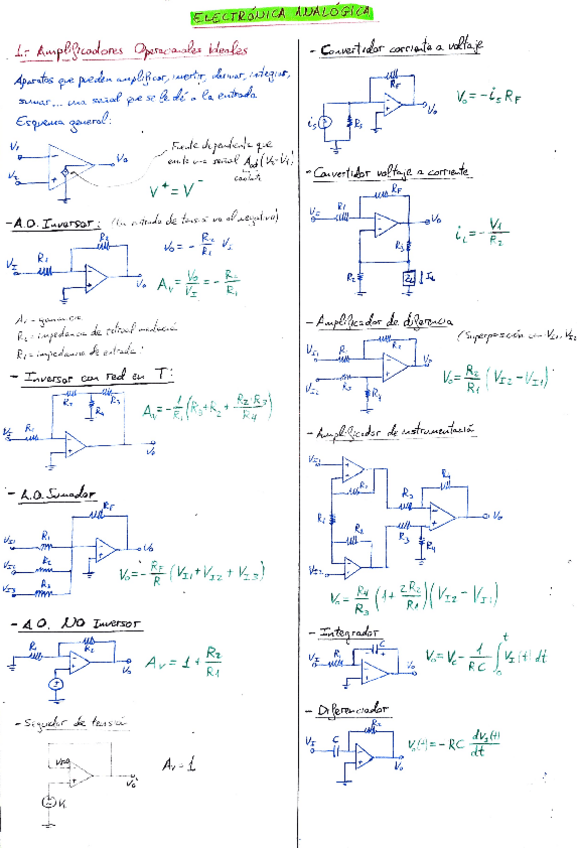 ELECTRÓNICA ANALÓGICA
1.- Amplificadores Operacionales Ideales
Aparatos que pueden amplificar, invertir, derivar, integrar,
sumar... una señal que se le dé a la entrada
Esquema general:
V1
V2
V0
Fuente dependiente que
emite una señal
V⁺ = V⁻
- A.O. Inversor:
R2
R1
VI
V0
V0 = - R2/R1 VI
AV = V0/VI = - R2/R1
AV = ganancia
R1 = impedancia de entrada
- Inversor con red en T:
R2 R3
R4
R1
VI
V0
AV = - 1/R1 (R3 + R2 + R2·R3/R4)
- A.O. Sumador
RF
VI1 R1
VI2 R2
VI3 R3
V0
V0 = - RF/R (VI1 + VI2 + VI3)
- A.O. NO Inversor
R1
R2
V0
AV = 1 + R2/R1
- Seguidor de tensión
V0
AV = 1
- Convertidor corriente a voltaje
RF
iS
RS
V0
V0 = - iS RF
- Convertidor voltaje a corriente
R1
RF
VI
V0
R3
R2
ZL
IL
iL = - VI/R2
- Amplificador de diferencia
(Superposición con VI1, VI2
VI1
R2
VI2
R4
V0
V0 = R2/R1 (VI2 - VI1)
- Amplificador de instrumentación
VI1
R2
R1
R2
VI2
R3
R4
R3
R4
V0
V0 = R4/R3 (1 + 2R2/R1)(VI2 - VI1)
- Integrador
R
C
VI
V0
V0 = VC - 1/RC ∫₀ᵗ VI(t) dt
- Diferenciador
R2
VI
C
V0
V0(t) = - RC dVI(t)/dt